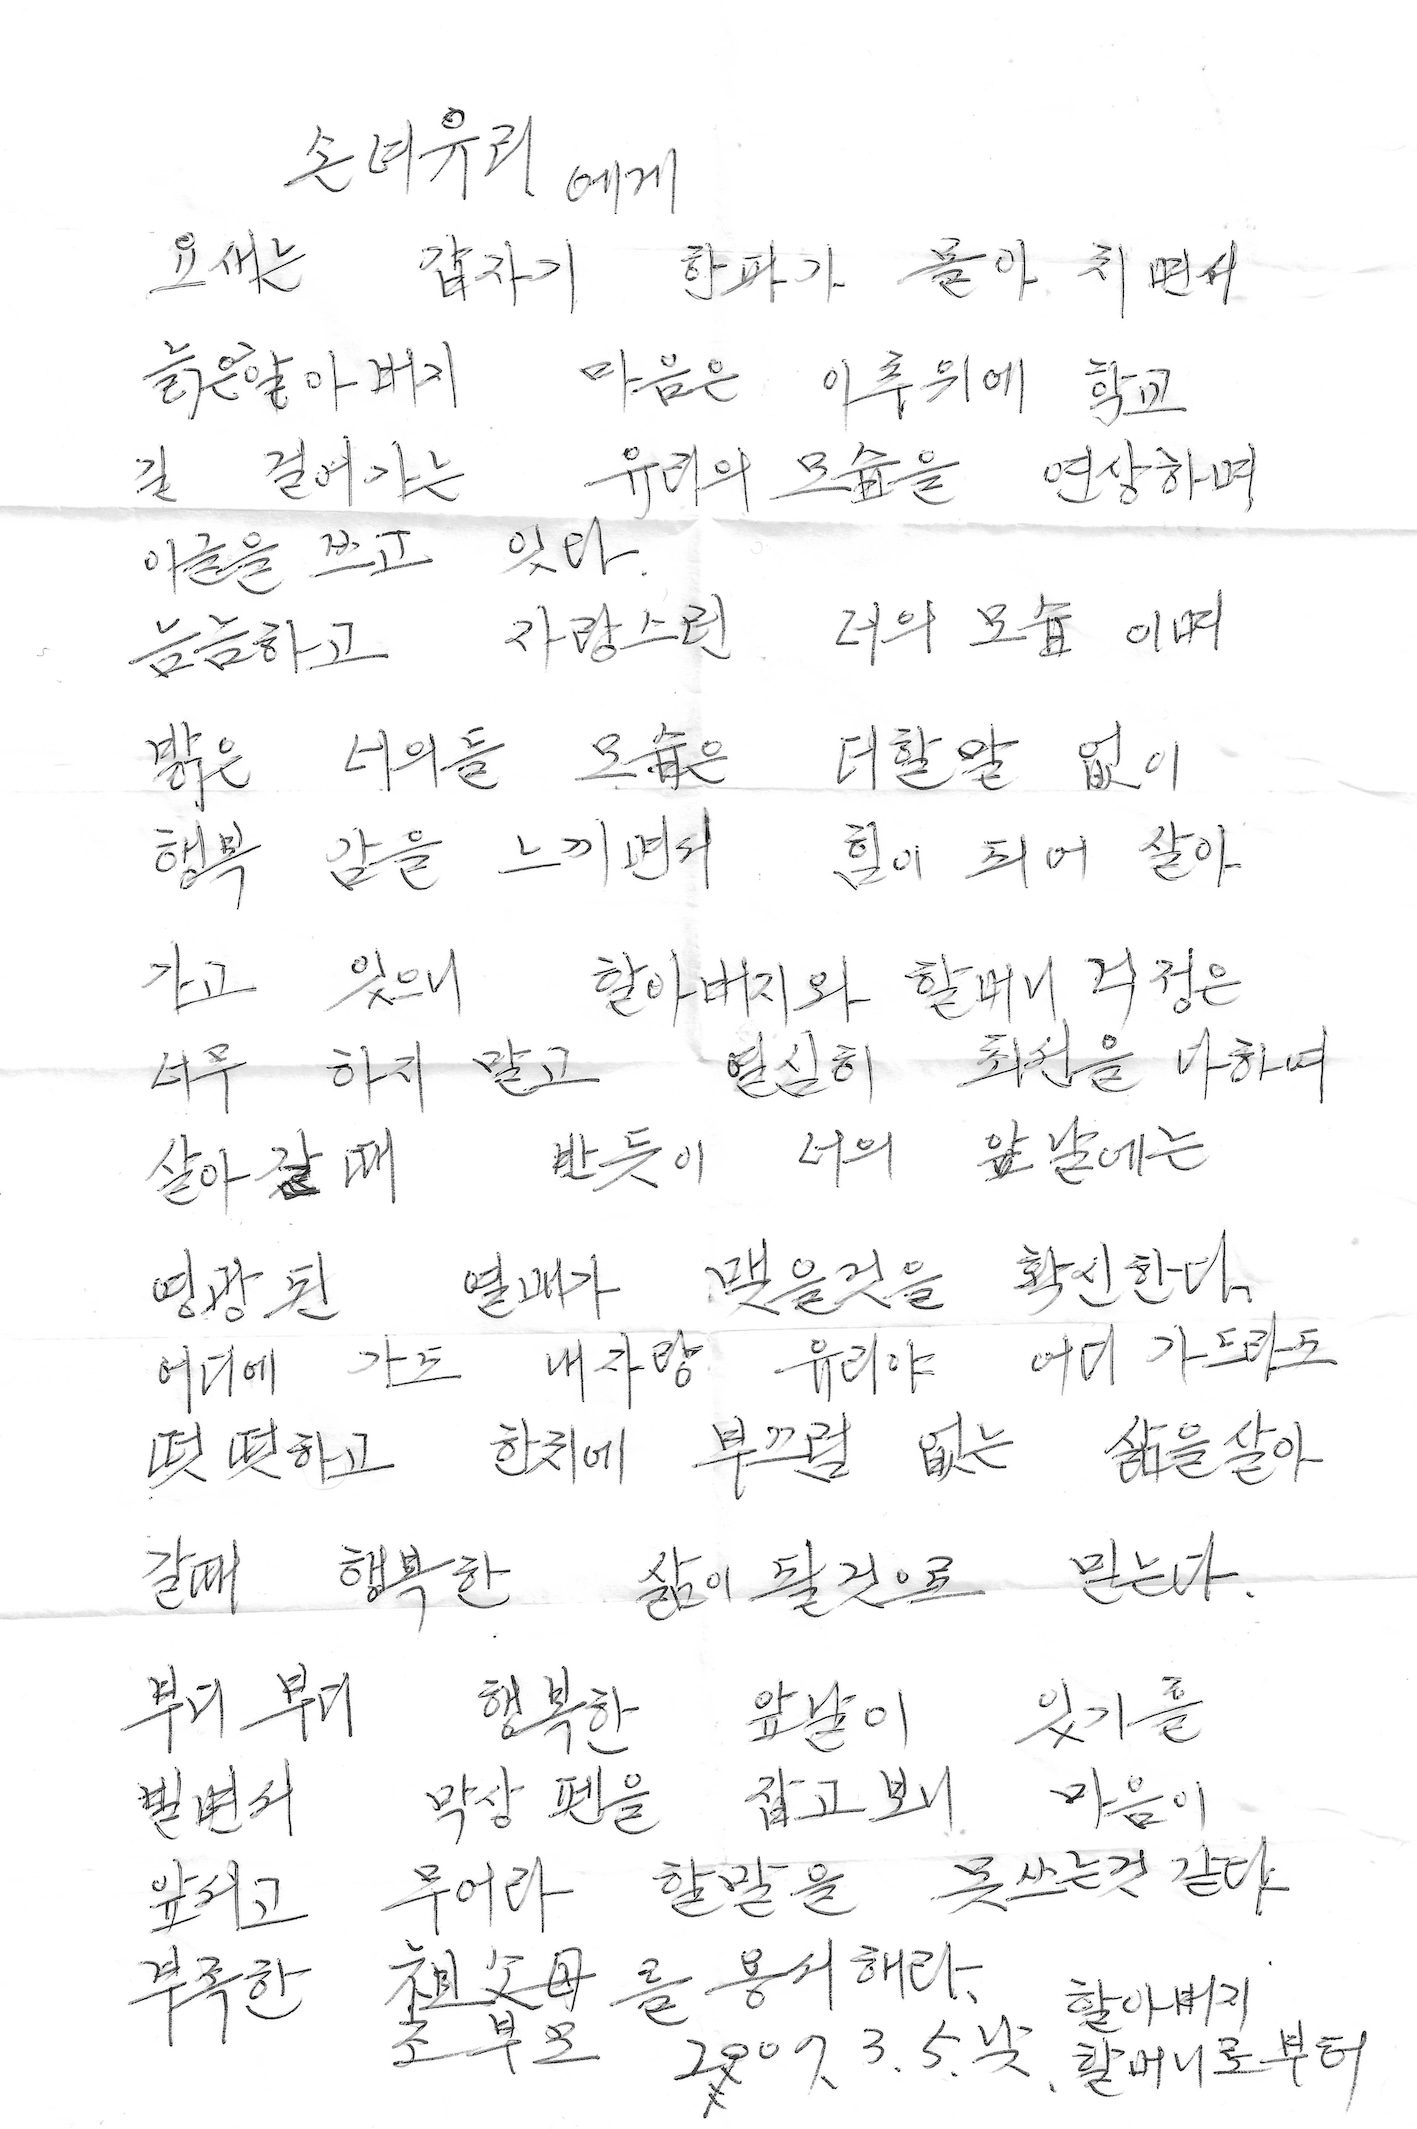 손녀유리 에게
요새는 갑자기 한파가 몰아 치면서
늙은할아버지 마음은 이추위에 학교
길 걸어가는 유리의 모습을 연상하며
이글을 쓰고 있다.
늠늠하고 자랑스런 너의 모습 이며
밝은 너의들 모습은 더할말 없이
행복 감을 느끼면서 힘이 되어 살아
가고 있으니 할아버지와 할머니 걱정은
너무 하지 말고 열심히 최선을 다하며
살아갈때 반듯이 너의 앞날에는
영광된 열매가 맺을것을 확신한다.
어디에 가도 내자랑 유리야 어디 가드라도
떳떳하고 한치에 부끄럼 없는 삶을살아
갈때 행복한 삶이 될것으로 믿는다.
부디 부디 행복한 앞날이 있기를
빌면서 막상 펜을 잡고보니 마음이
앞서고 무어라 할말을 못쓰는것 같다
부족한 祖父母를 용서해라.
조부모 2007. 3. 5. 낮.
할아버지
할머니로부터